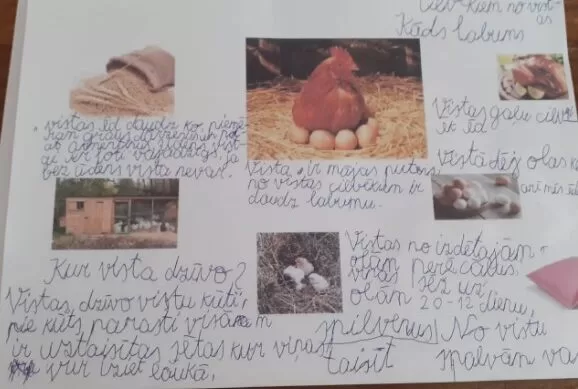 cilvēkiem no vist-
as
Kāds labums
Vistas ēd daudz ko, piemē-
ram graudus,
ūdens vist-
ai ir ļoti vajadzīgs, ja
bez ūdens vista nevar.
Vista ir mājas putns
no vistas cilvēkiem ir
daudz labumu.
Vistas gaļu cilvē
ik ēd.
Vistā dēj olas k
arī mēs ēd
Kur vista dzīvo?
Vistas dzīvo vistu kūtī,
pie kūts parasti visām
ir uztaisītas sētas kur viņas
var iziet laukā.
Vistas no izdētajām
olām perē cāļus.
sēž uz
olām 20-12 dienu,
No vistu
spalvām va
taisīt
spilvenus